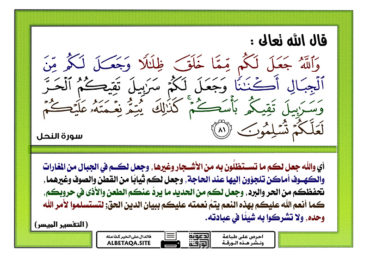 قال الله تعالى :
وَٱللَّهُ جَعَلَ لَكُم مِّمَّا خَلَقَ ظِلَٰلًا وَجَعَلَ لَكُم مِّنَ
ٱلْجِبَالِ أَكْنَٰنًا وَجَعَلَ لَكُمْ سَرَٰبِيلَ تَقِيكُمُ ٱلْحَرَّ
وَسَرَٰبِيلَ تَقِيكُم بَأْسَكُمْ ۚ كَذَٰلِكَ يُتِمُّ نِعْمَتَهُۥ عَلَيْكُمْ
لَعَلَّكُمْ تُسْلِمُونَ ٨١
سورة النحل
أي والله جعل لكم ما تستظلُّون به من الأشجار وغيرها، وجعل لكم في الجبال من المغارات
والكهوف أماكن تلجؤون إليها عند الحاجة، وجعل لكم ثيابًا من القطن والصوف وغيرهما،
تحفظكم من الحر والبرد، وجعل لكم من الحديد ما يردُّ عنكم الطعن والأذى في حروبكم،
كما أنعم الله عليكم بهذه النعم يتمُّ نعمته عليكم ببيان الدين الحق؛ لتستسلموا لأمر الله
وحده، ولا تشركوا به شيئًا في عبادته.
( التفسير الميسر )
احرص على طباعة
ونشر هذه الورقة
ALBETAQA.SITE